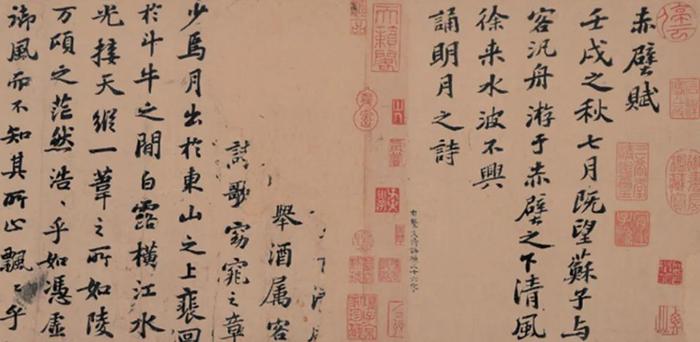 赤壁賦
壬戌之秋七月既望蘇子與
客汎舟游于赤壁之下清風
徐来水波不興
誦明月之詩
舉酒属客
歌窈窕之章
少焉月出於東山之上裵回
於斗牛之間白露横江水
光接天縱一葦之所如陵
万頃之茫然浩〻乎如馮虚
御風而不知其所止飄〻乎